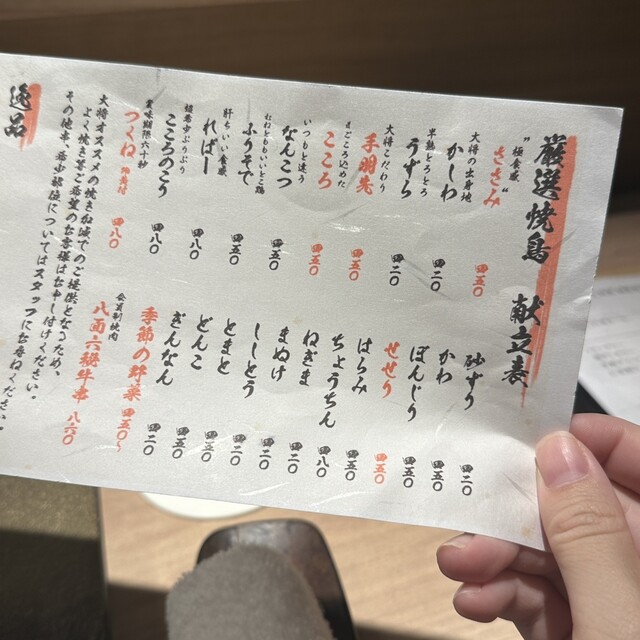 厳選焼鳥 献立表
"極食感"
ささみ 四五〇
大将の出身地
かしわ 四二〇
半熟とろとろ
うずら 四二〇
大将こだわり
手羽先 四五〇
まごころ込めた
こころ 四五〇
いつもと違う
なんこつ 四五〇
ふりそで 四五〇
肝ちいい食感
ればー 四八〇
超希少ぷりぷり
こころのこり 四八〇
賞味期限六十秒
つくね 四八〇
砂ずり 四二〇
かわ 四五〇
ぼんじり 四五〇
せせり 四五〇
はらみ 四五〇
ちょうちん 四八〇
ねぎま 四二〇
まぬけ 四二〇
ししとう 四二〇
とまと 四五〇
どんこ 四五〇
ぎんなん 四二〇
季節の野菜 四五〇〜
会員制焼肉
八面六秘牛串 八六〇
大将オススメの焼き加減でのご提供となるため、
よく焼き等ご希望のお客様はお申し付けください。
その他串、希少部位についてはスタッフにお尋ねください。
逸品